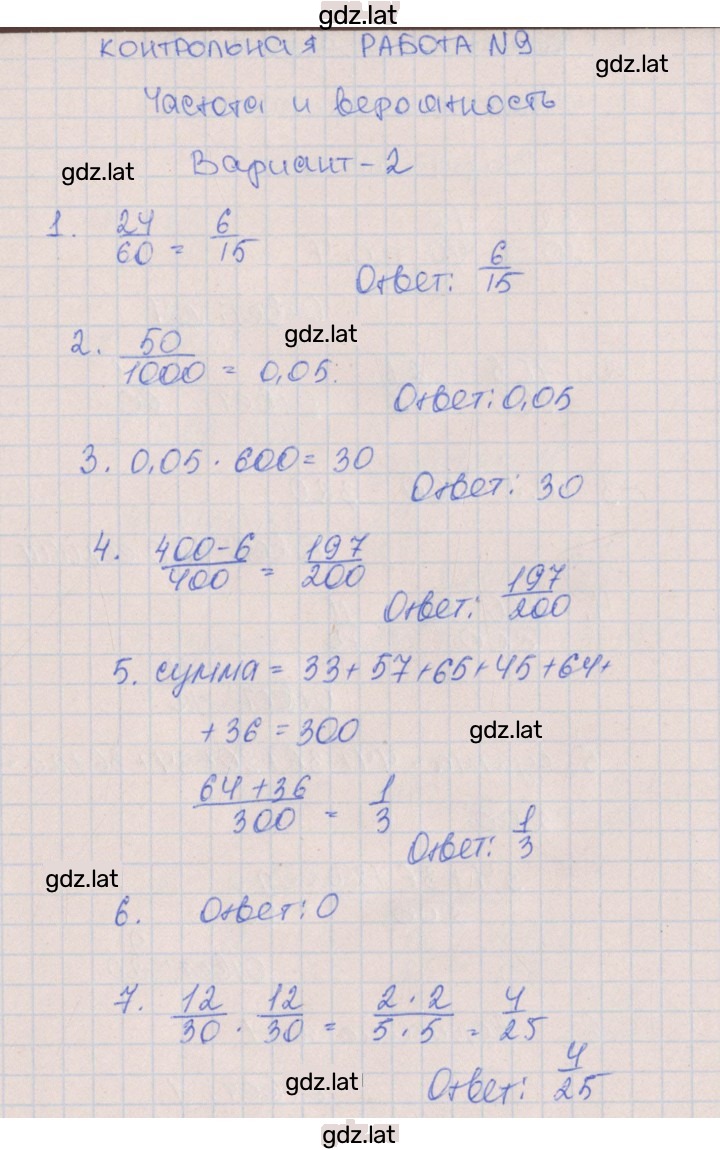 gdz.lat
КОНТРОЛЬНАЯ РАБОТА N9
gdz.lat
Частота и вероятность
gdz.lat
Вариант-2
1. 24/60 = 6/15
Ответ: 6/15
gdz.lat
2. 50/1000 = 0,05.
Ответ: 0,05
3. 0,05 · 600 = 30
Ответ: 30
4. 400-6/400 = 197/200
Ответ: 197/200
5. сумма = 33+57+65+45+64+
+36 = 300
gdz.lat
64+36/300 = 1/3
Ответ: 1/3
gdz.lat
6. Ответ: 0
7. 12/30 · 12/30 = 2·2/5·5 = 4/25
gdz.lat
Ответ: 4/25
gdz.lat